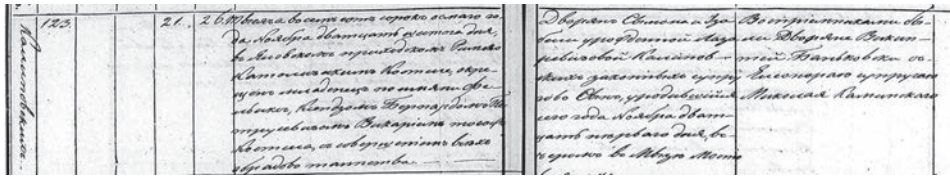 Калиновскій.
123.
21.
26.
Тысяча восемьсотъ сорокъ осьмаго го-
да Ноября двадцать шестого дня,
въ приходскомъ Римско
Католическомъ Костелѣ, окре-
щенъ младенецъ по имени Фе-
ликсъ, Ксендзомъ Бернардомъ Пе-
трусевичемъ Викаріемъ того
Костела, съ совершеніемъ всѣхъ
обрядовъ таинства.
Дворянъ и Изо-
урожденной Лаза-
ревичовой Калинов-
скихъ законныхъ супру-
говъ Сынъ, родившійся
сего года Ноября двад-
цать перваго дня, ве-
черомъ въ
Воспріемниками бы-
ли Дворяне Викен-
тій Баньковскій съ
Елеонорою супругою
Николая Каминскаго